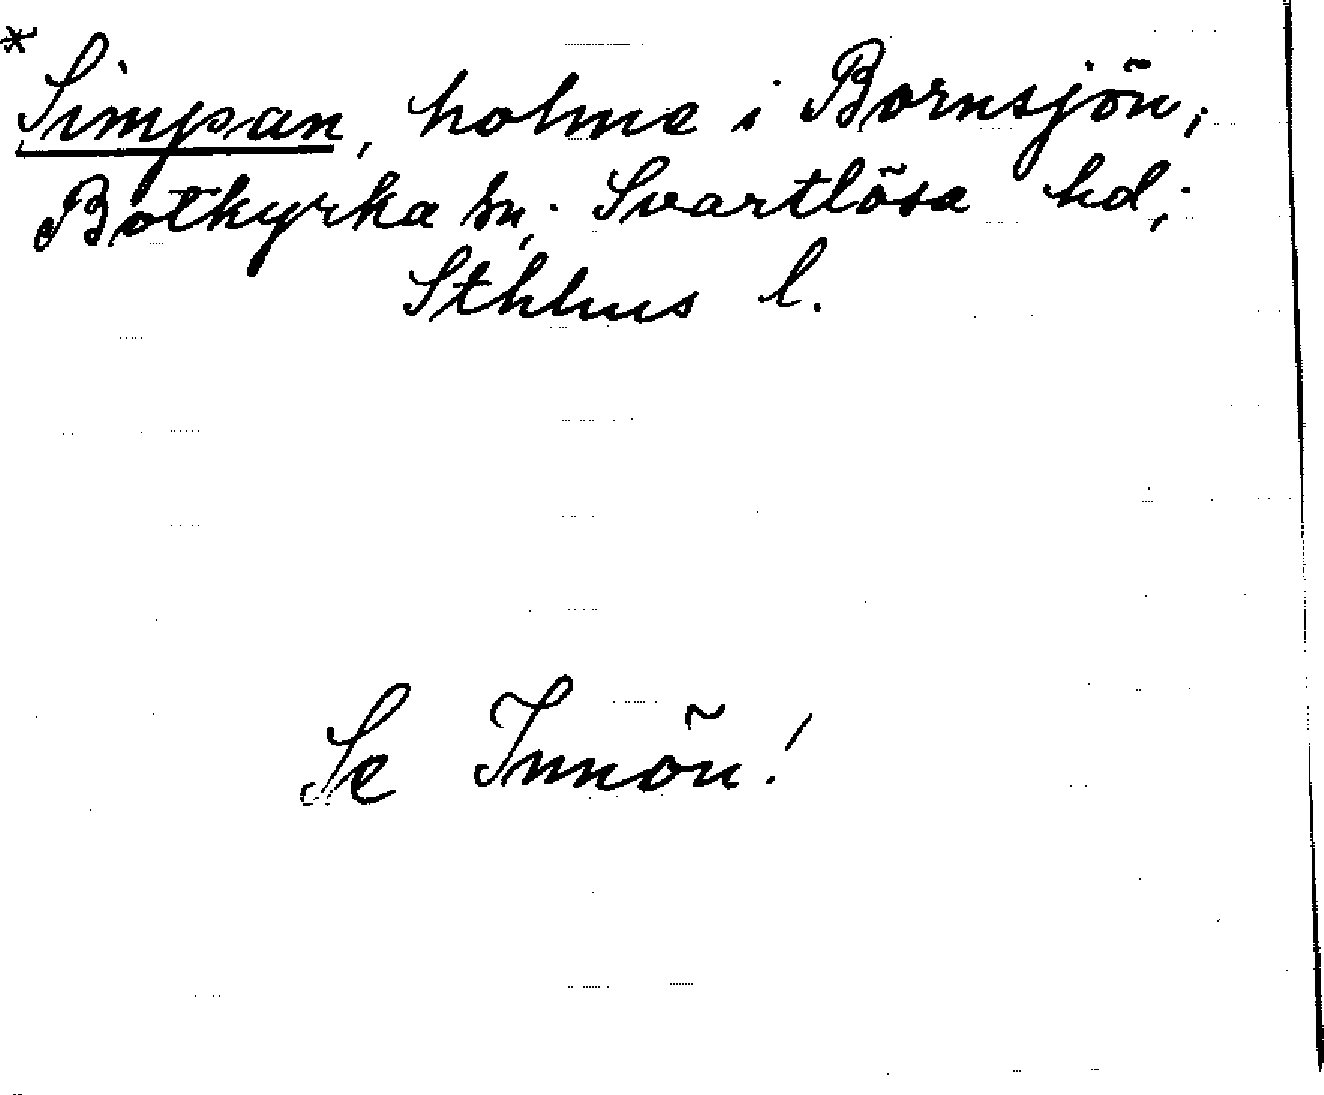 *Simpan, holme i Bornsjön,
Botkyrka sn, Svartlösa hd,
Sthlms l.
Se Innön!